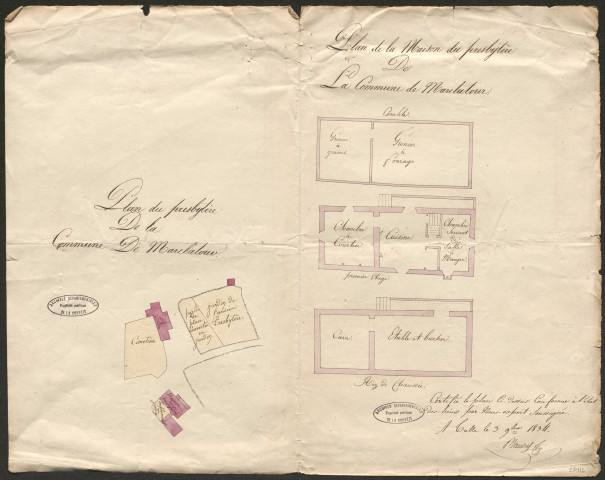 Plan du presbytère
De la
Commune De Marbatour
Cimetière
partie
de place
convertie
en
jardin
jardin de
l'ancien
Presbytère
ARCHIVES DÉPARTEMENTALES
Propriété publique
DE LA CORRÈZE
Plan de la Maison du presbytère
De
La Commune de Marbatour
Comble
Grenier
à
grains
Grenier
à
fourrage
Chambre
à
Coucher
Cuisine
Chambre
Servant
de
Salle
à
Manger
premier Etage
Cave
Etable et bucher
Rez de Chaussée
Certifié le plan Ci-dessus Conforme à l'état
des lieux par Nous expert Soussigné
A Tulle le 3 9bre 1834
ARCHIVES DÉPARTEMENTALES
Propriété publique
DE LA CORRÈZE